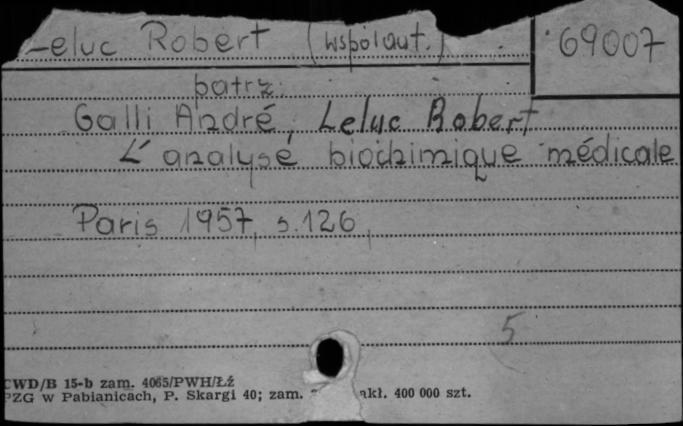 Leluc Robert (współaut.) 69007
patrz:
Galli André, Leluc Robert
L'analyse biochimique médicale
Paris 1957, s. 126,
5
CWD/B 15-b zam. 4065/PWH/Łź
PZG w Pabianicach, P. Skargi 40; zam. nakł. 400 000 szt.